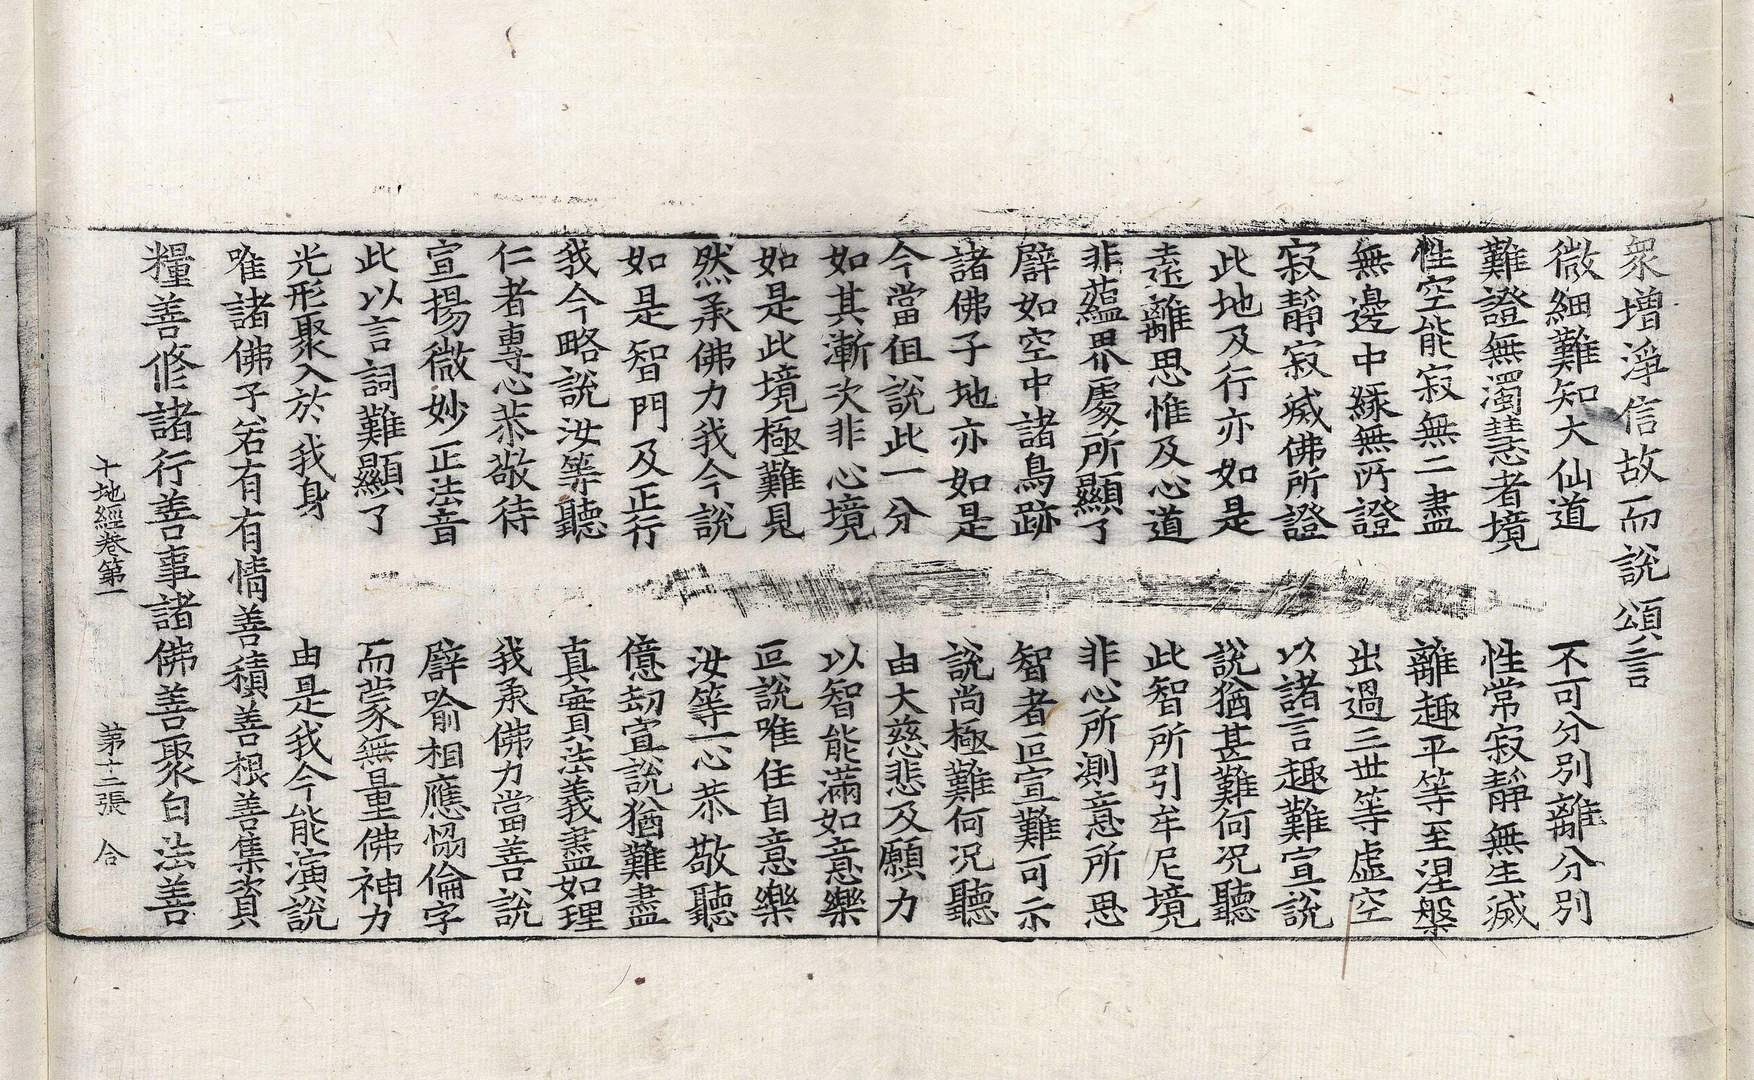 衆增淨信故而說頌言
微細難知大仙道　不可分別離分別
難證無濁慧者境　性常寂靜無生滅
性空能寂無二盡　離趣平等至涅槃
無邊中緣無所證　出過三世等虛空
寂靜寂滅佛所證　以諸言趣難宣說
此地及行亦如是　說猶甚難何況聽
遠離思惟及心道　此智所引牟尼境
非蘊界處所顯了　非心所測意所思
譬如空中諸鳥跡　智者叵宣難可示
諸佛子地亦如是　說尚極難何況聽
今當但說此一分　由大慈悲及願力
如其漸次非心境　以智能滿如意樂
如是此境極難見　叵說唯住自意樂
然承佛力我今說　汝等一心恭敬聽
如是智門及正行　億劫宣說猶難盡
我今略說汝等聽　真實法義盡如理
仁者專心恭敬待　我承佛力當善說
宣揚微妙正法音　譬喻相應惕倫字
此以言詞難顯了　而蒙無量佛神力
光形聚入於我身　由是我今能演說
唯諸佛子若有有情善積善根善集資
糧善修諸行善事諸佛善聚白法善
十地經卷第一　第十二張　合